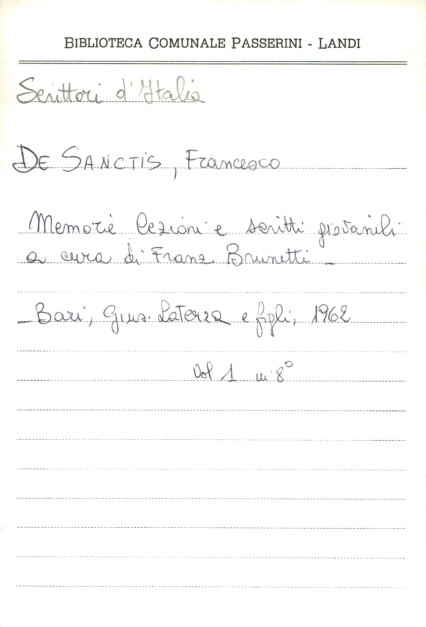 BIBLIOTECA COMUNALE PASSERINI - LANDI
Scrittori d'Italia
DE SANCTIS, Francesco
Memorie lezioni e scritti giovanili
a cura di Franz Brunetti -
- Bari, Gius. Laterza e figli, 1962
Vol 1 in 8°